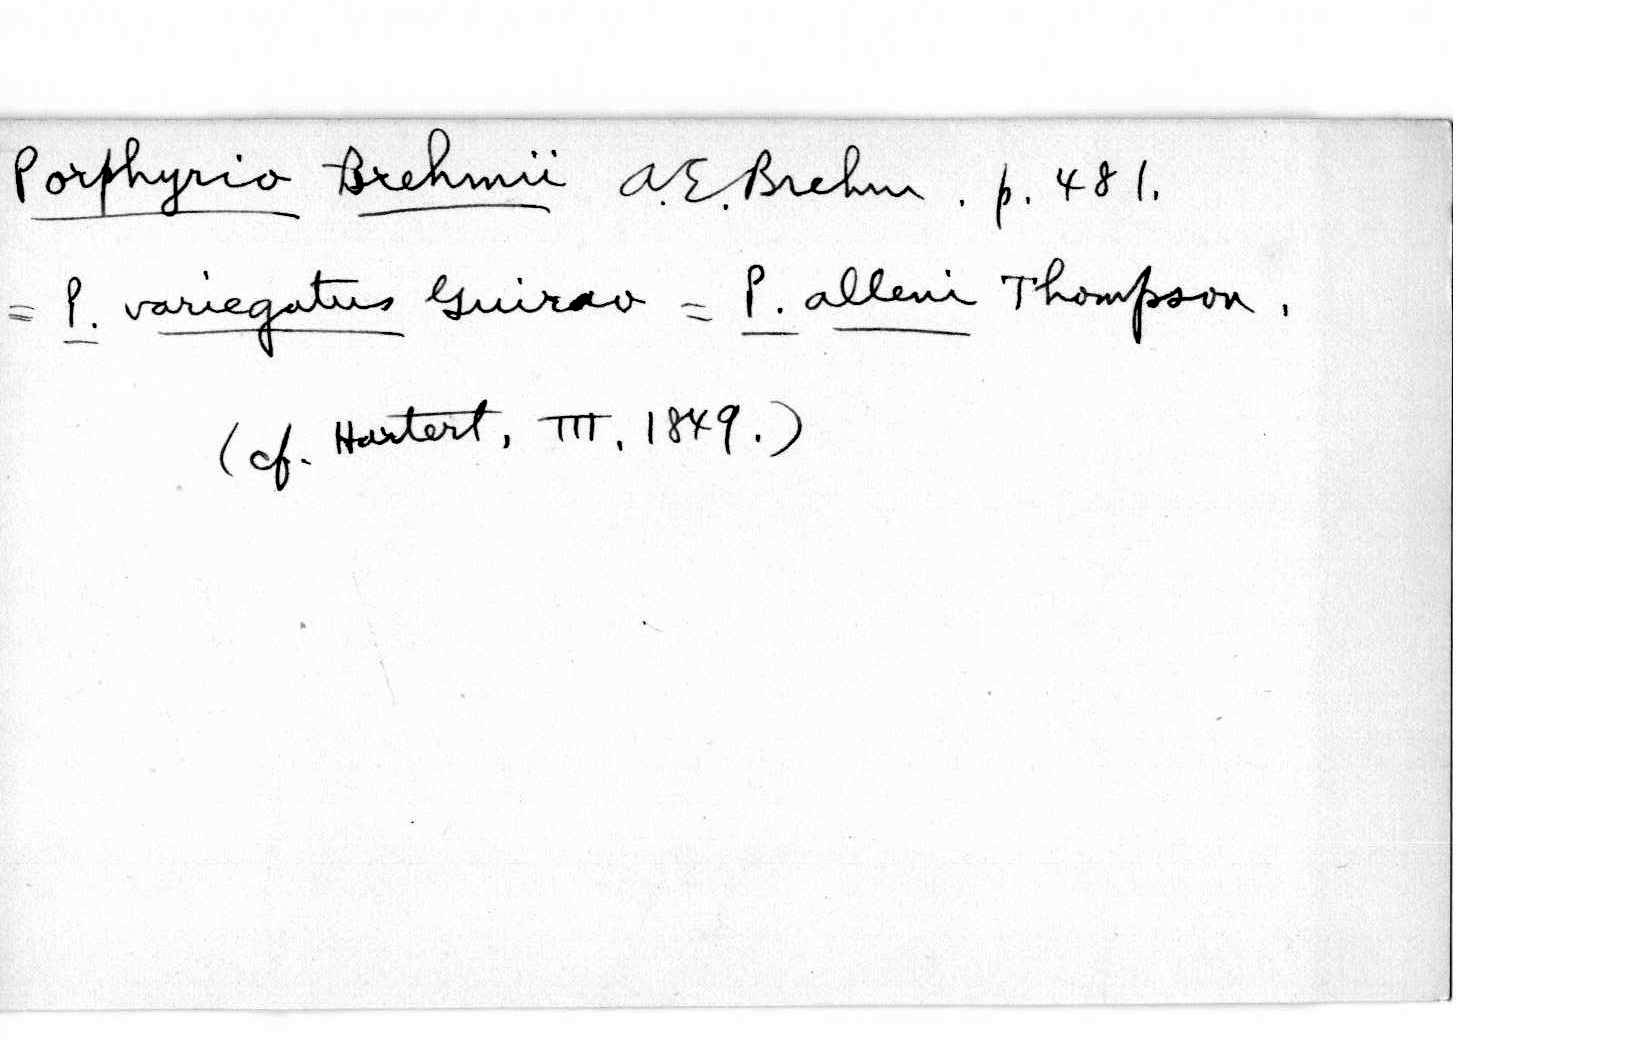 Porphyrio Brehmii A.E. Brehm. p. 481.
= P. variegatus Guirao = P. alleni Thompson.
(cf. Hartert, III, 1849.)